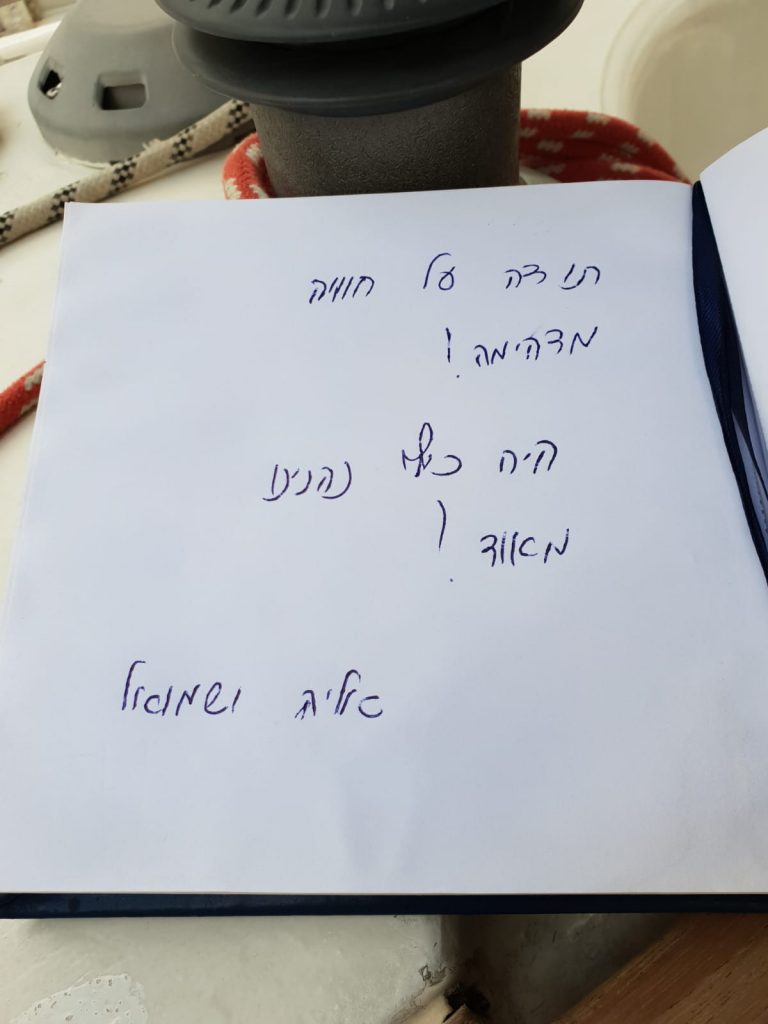 תודה על חוויה
מדהימה!
היה כיף נהנינו
מאוד!
אליה ושמואל